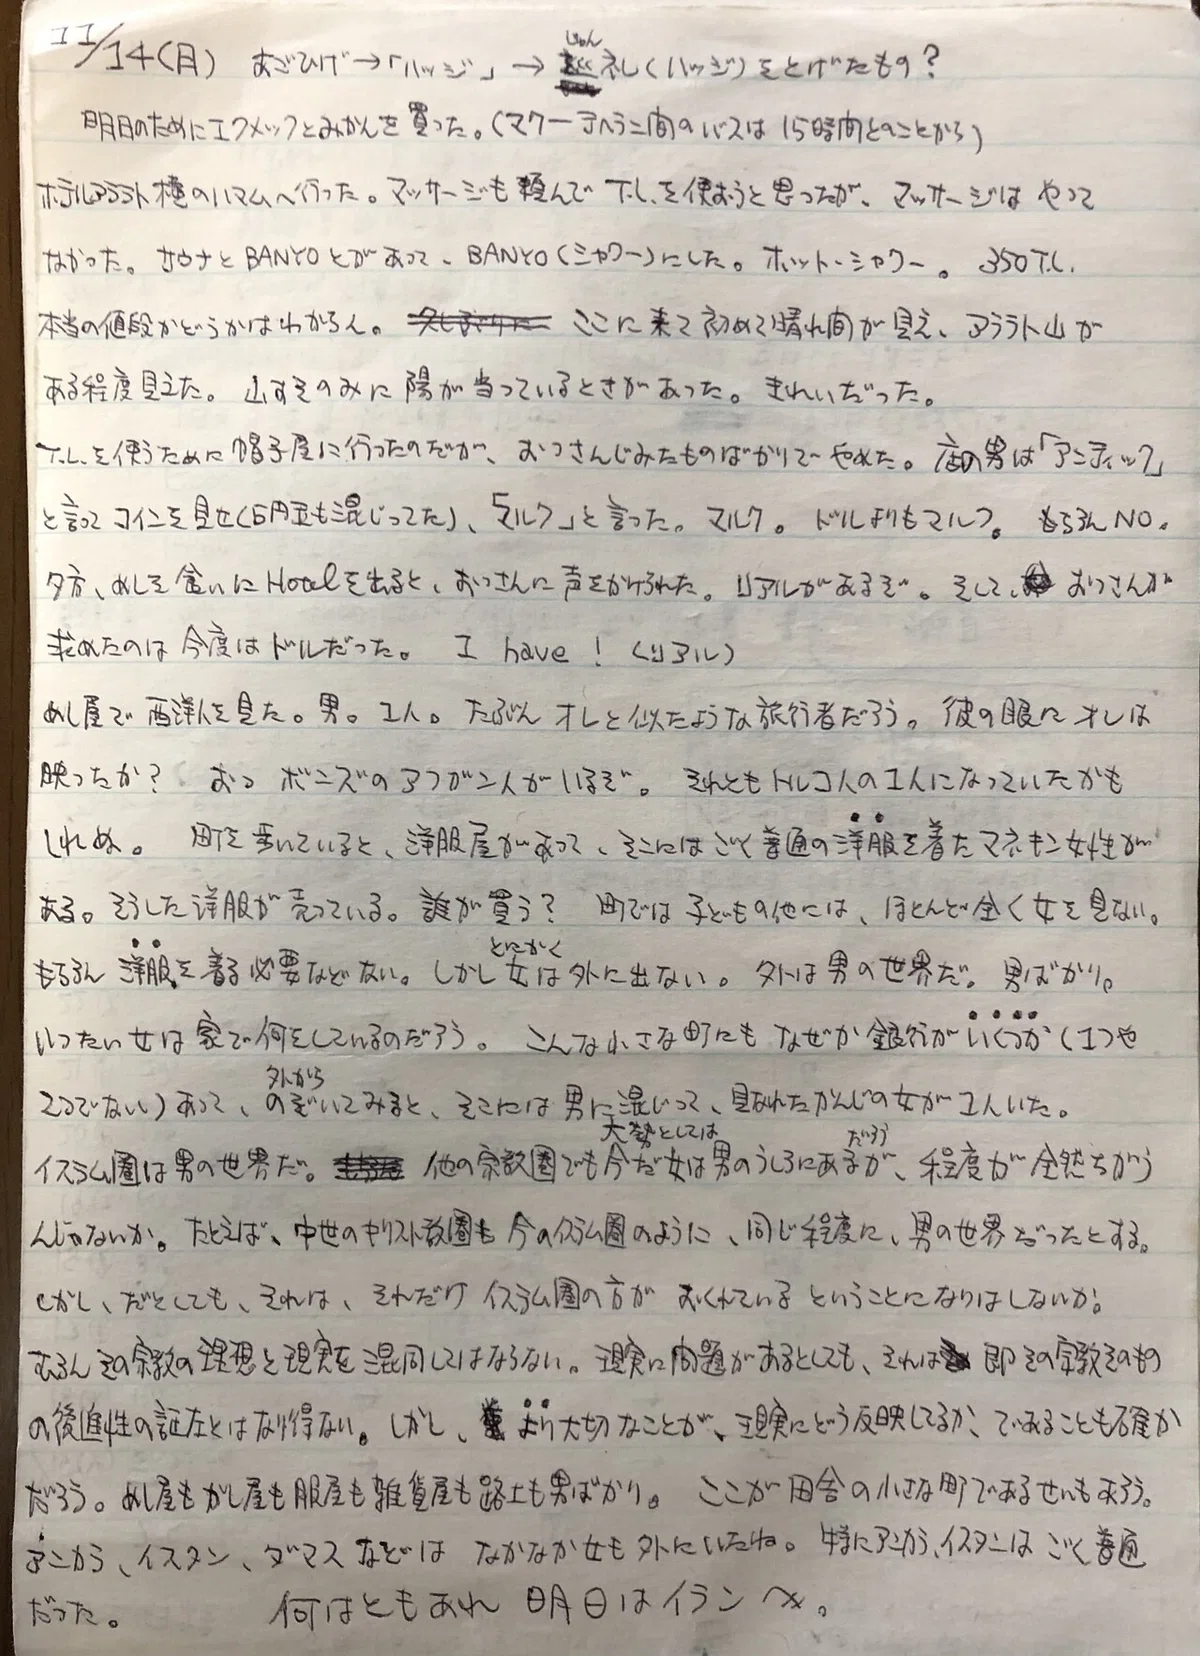 11/14(月) あごひげ→「ハッジ」→ じゅん礼(ハッジ)をとげたもの?
明日のためにエクメックとみかんを買った。(マクー－テヘラン間のバスは15時間とのことから)
ホテルアララト横のハマムへ行った。マッサージも頼んでT.L.を使おうと思ったが、マッサージはやって
なかった。サウナとBANYOとがあって、BANYO(シャワー)にした。ホット・シャワー。350T.L.
本当の値段かどうかはわからん。久しぶりに ここに来て初めて晴れ間が見え、アララト山が
ある程度見えた。山すそのみに陽が当っているときがあった。きれいだった。
T.L.を使うために帽子屋に行ったのだが、おっさんじみたものばかりでやめた。店の男は「アンティック」
と言ってコインを見せ(5円玉も混じってた)、「マルク」と言った。マルク。ドルよりもマルク。もちろんNO。
夕方、めしを食いにHotelを出ると、おっさんに声をかけられた。リアルがあるぞ。そして、おっさんが
求めたのは今度はドルだった。I have!(リアル)
めし屋で西洋人を見た。男。1人。たぶんオレと似たような旅行者だろう。彼の眼にオレは
映ったか? おっ ボニーズのアフガン人がいるぞ。それともトルコ人の1人になっていたかも
しれぬ。町を歩いていると、洋服屋があって、そこにはごく普通の洋服を着たマネキン女性が
ある。そうした洋服が売っている。誰が買う? 町では子どもの他には、ほとんど全く女を見ない。
もちろん洋服を着る必要などない。しかしとにかく女は外に出ない。外は男の世界だ。男ばかり。
いったい女は家で何をしているのだろう。こんな小さな町にもなぜか銀行がいくつか(1つや
2つでない)あって、外からのぞいてみると、そこには男に混じって、見なれたかんじの女が1人いた。
イスラム圏は男の世界だ。他の宗教圏でも今だ大勢としては女は男のうしろにあるだろうが、程度が全然ちがう
んじゃないか。たとえば、中世のキリスト教圏も今のイスラム圏のように、同じ程度に、男の世界だったとする。
しかし、だとしても、それは、それだけイスラム圏の方がおくれているということになりはしないか。
むろんその宗教の理想と現実を混同してはならない。現実に問題があるとしても、それは即その宗教そのもの
の後進性の証左とはなり得ない。しかし、より大切なことが、現実にどう反映してるか、であることも確か
だろう。めし屋もかし屋も服屋も雑貨屋も路上も男ばかり。ここが田舎の小さな町であるせいもあろう。
アンカラ、イスタン、ダマスなどはなかなか女も外にいたね。特にアンカラ、イスタンはごく普通
だった。何はともあれ明日はイランへ。